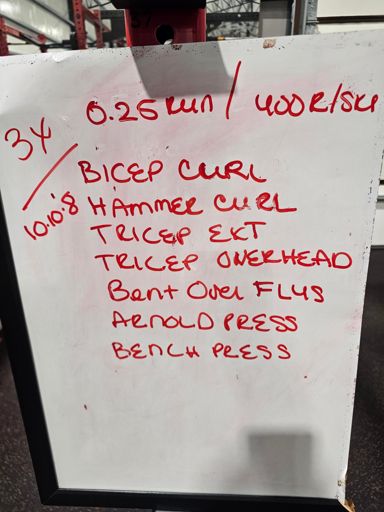 0.25 RUN / 400 R/SKI
3X
10.10.8
BICEP CURL
HAMMER CURL
TRICEP EXT
TRICEP OVERHEAD
Bent Over FLYS
ARNOLD PRESS
BENCH PRESS